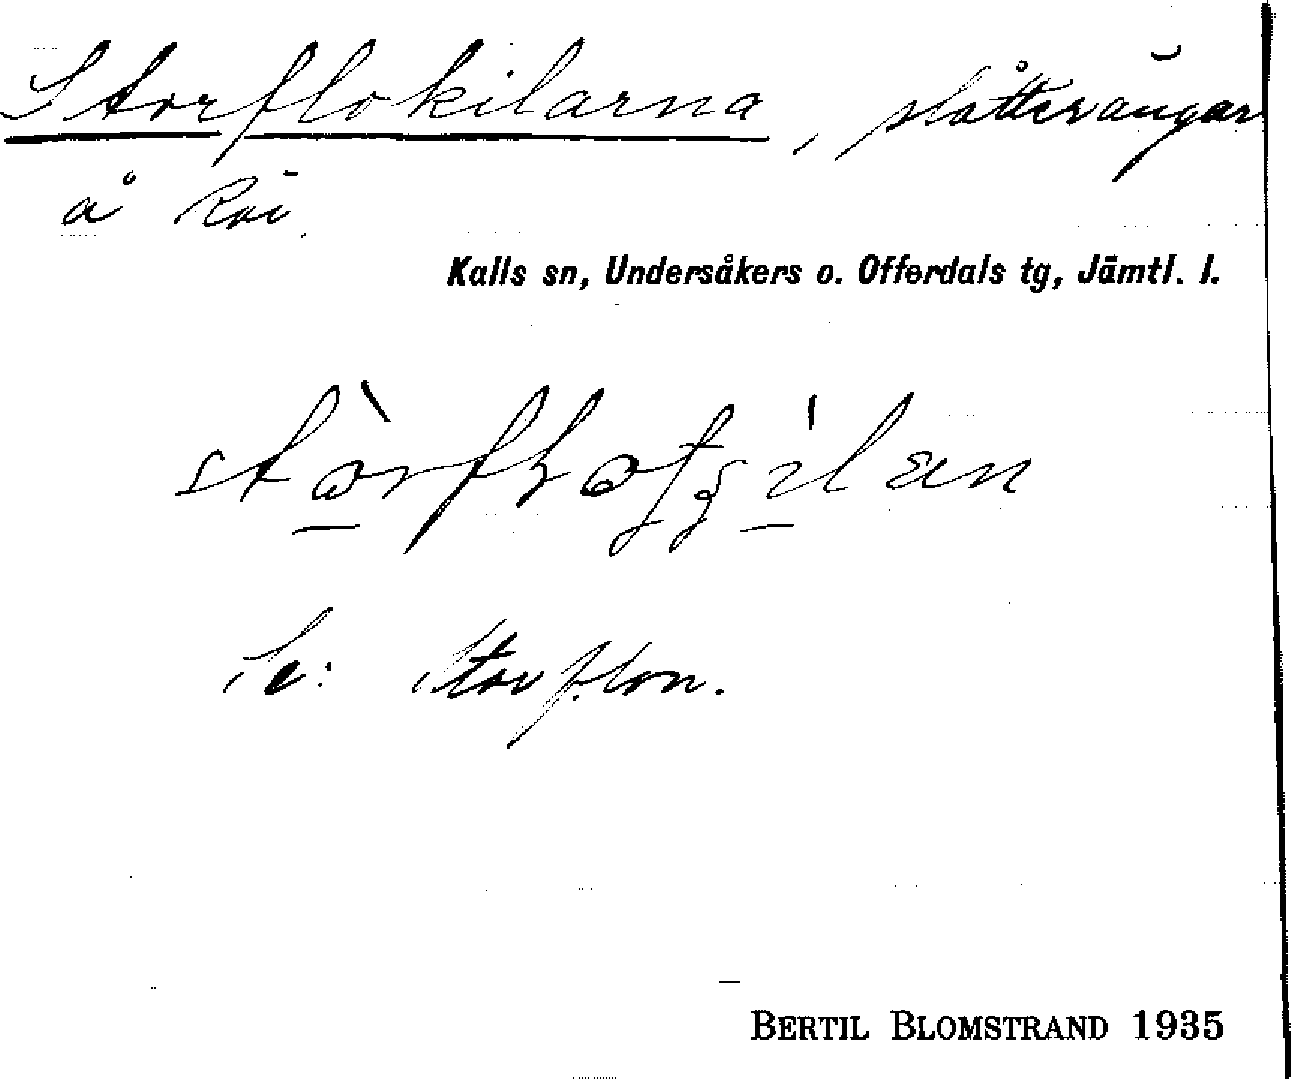 Storflokilarna, slåttervångar
å Roi.
Kalls sn, Undersåkers o. Offerdals tg, Jämtl. l.
Se: Storflon.
BERTIL BLOMSTRAND 1935